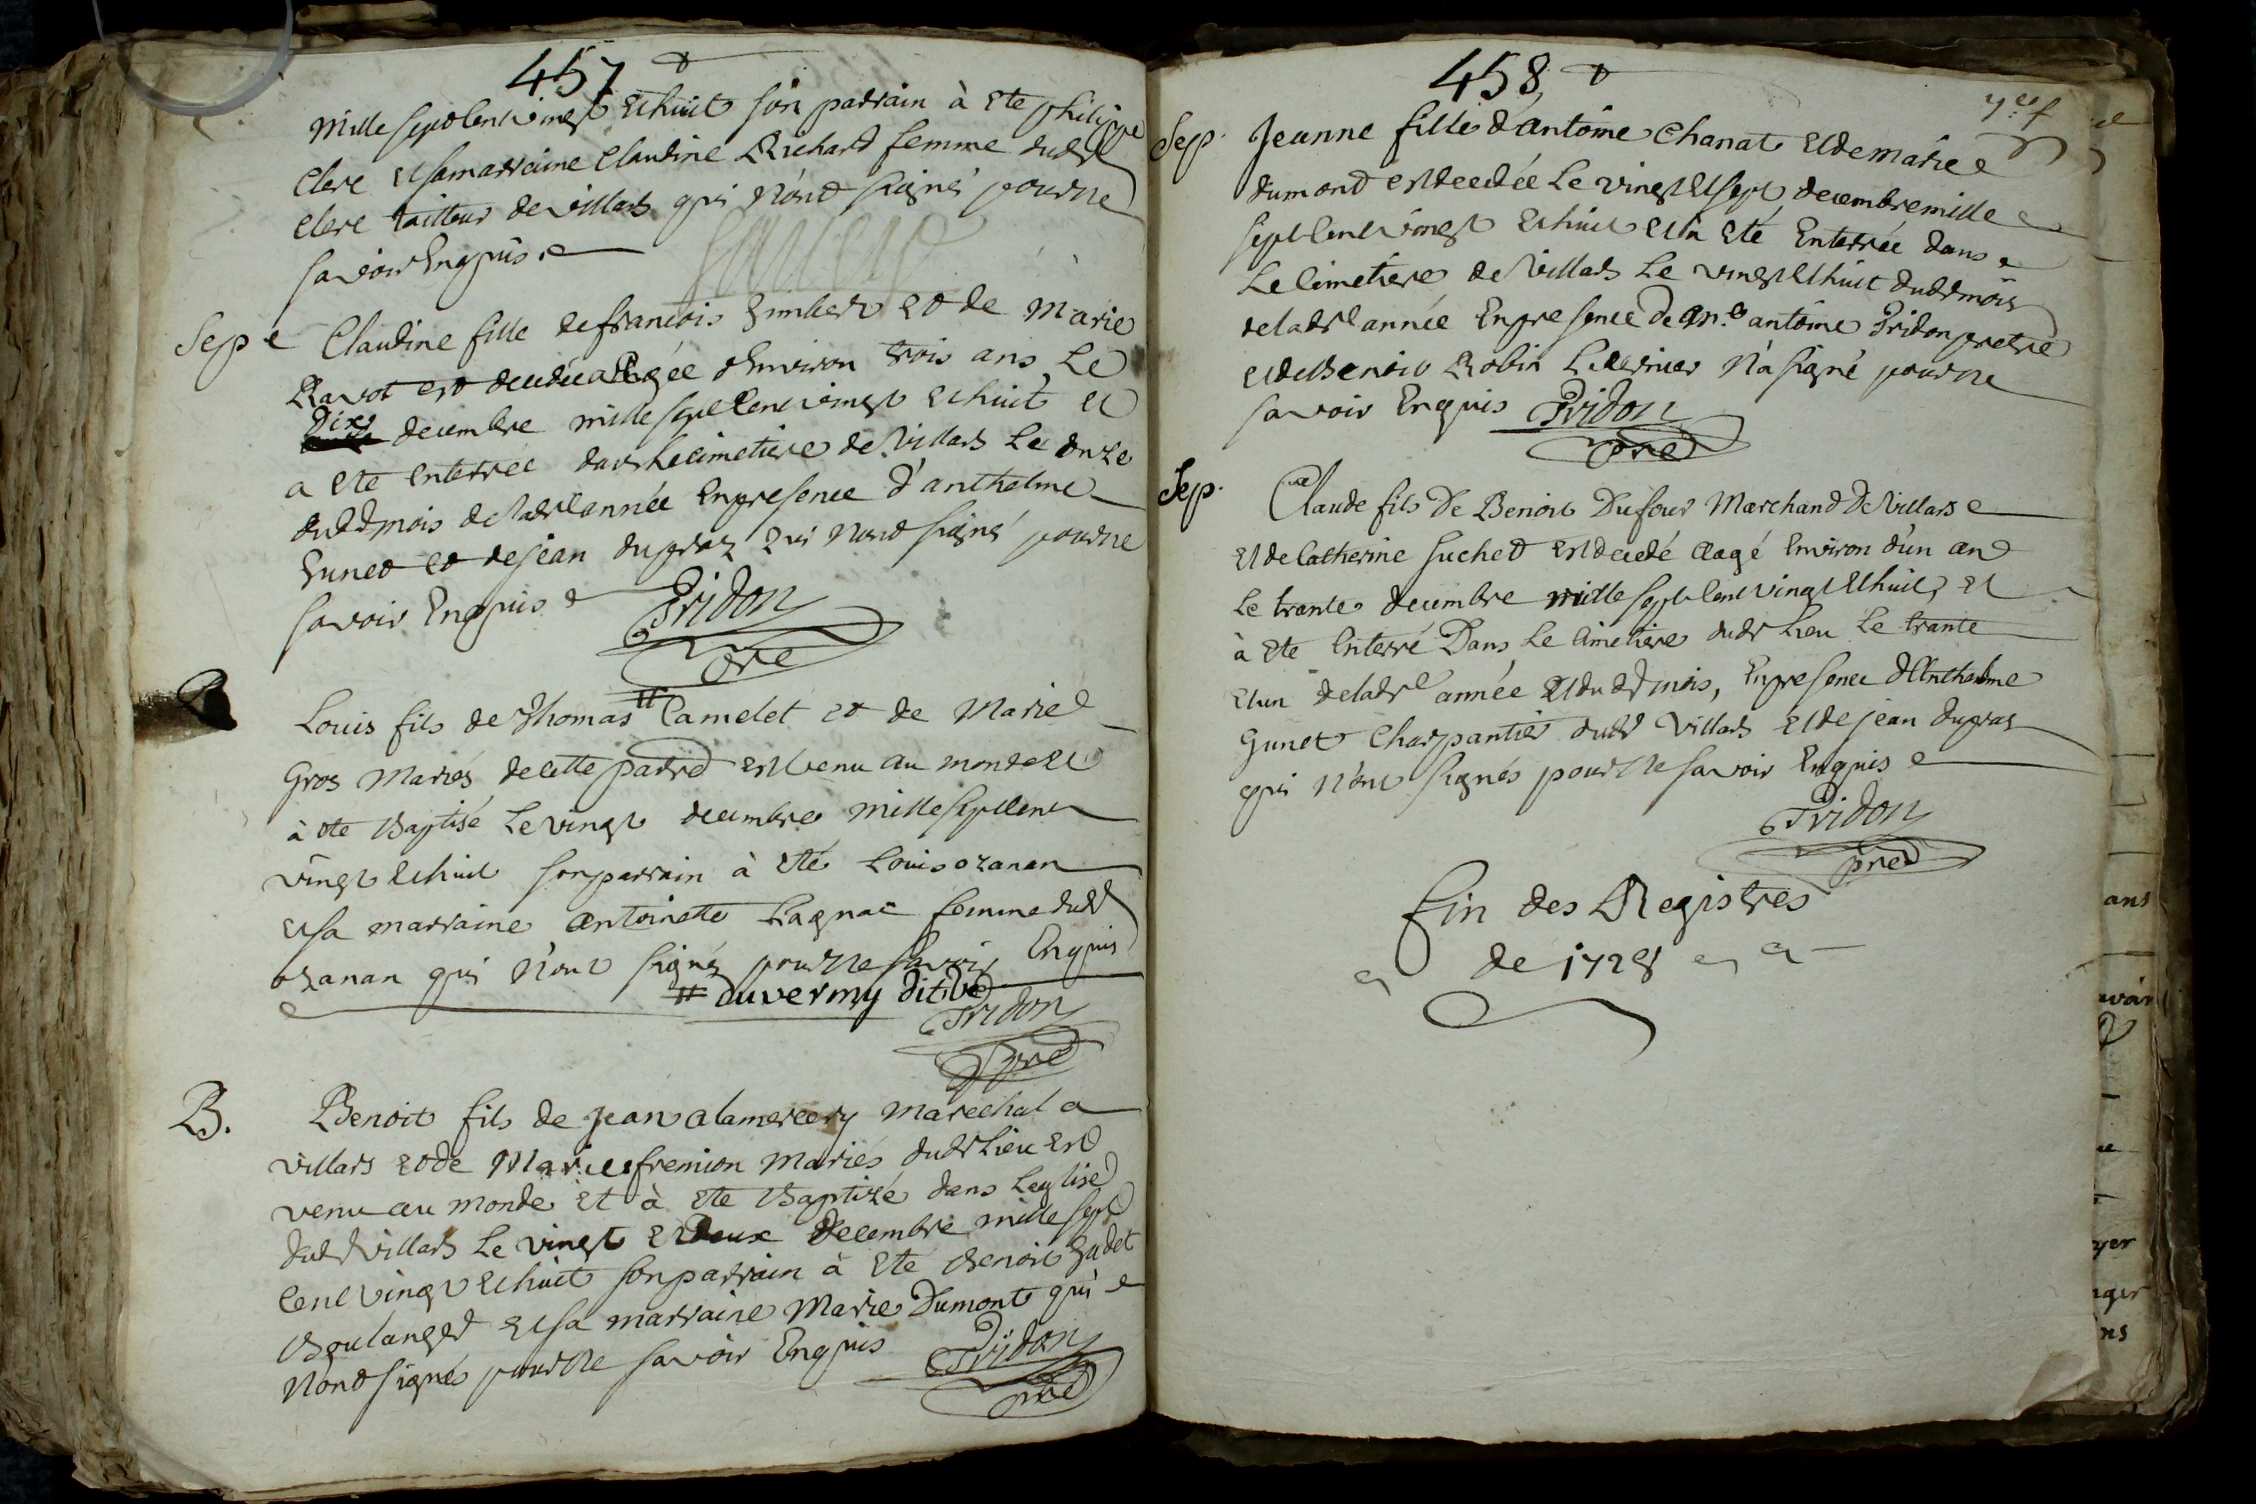 457
mille sept cent vingt et huit son parrain à ete philippe
clerc et sa marraine claudine Richard femme dudt
clerc tailleur de villars qui n'ont signé pour ne
savoir Enquis
Sep Claudine fille de francois et de Marie
Ravot est decedée aagée d'Environ trois ans Le
Dix decembre mille sept cent vingt et huit et
a ete enterrée dans Le cimetiere de villars Le onze
dudt mois de ladte année En presence d'anthelme
Gunet et de jean dupras qui n'ont signé pour ne
savoir Enquis Pridon
pre
Louis fils de Thomas # Camelet et de Marie
Gros Mariés de cette parr est venu au monde et
à ete Baptisé Le vingt decembre mille sept cent
vingt et huit son parrain à eté Louis ozanan
et sa marraine antoinette Lagnac femme dudt
ozanan qui n'ont signés pour ne savoir Enquis
# duvermy dit
Pridon
pre
B. Benoit fils de jean alamercery marechal a
villars et de Marie fremion Mariés dudt Lieu est
venu au monde et à ete Baptizé dans L'eglise
dudt villars Le vingt et deux decembre mille sept
cent vingt et huit son parrain à ete Benoit
Boulanger et sa marraine Marie Dumont qui
n'ont signés pour ne savoir Enquis Pridon
pre
458
Sep. Jeanne fille d'antoine chanat et de marie
dumont est decedée Le vingt et sept decembre mille
sept cent vingt et huit et à eté Enterrée dans
Le cimetiere de villars Le vingt et huit dudt mois
de ladte année En presence de Mre antoine Pridon pretre
et de Benoit Robin Le dernier n'a signé pour ne
savoir Enquis Pridon
pre
Sep. Claude fils De Benoit Dufour Marchand De villars
et de Catherine suchet est decedé aagé Environ d'un an
Le trante decembre mille sept cent vingt et huit, et
à ete Enterré Dans Le Cimetiere dudt Lieu Le trante
et un de ladte année et dudt mois, En presence d'Anthelme
Gunet Charpantier dudt villars et de jean dupras
qui n'ont signés pour ne savoir Enquis
Pridon
pre
fin des Registres
de 1728